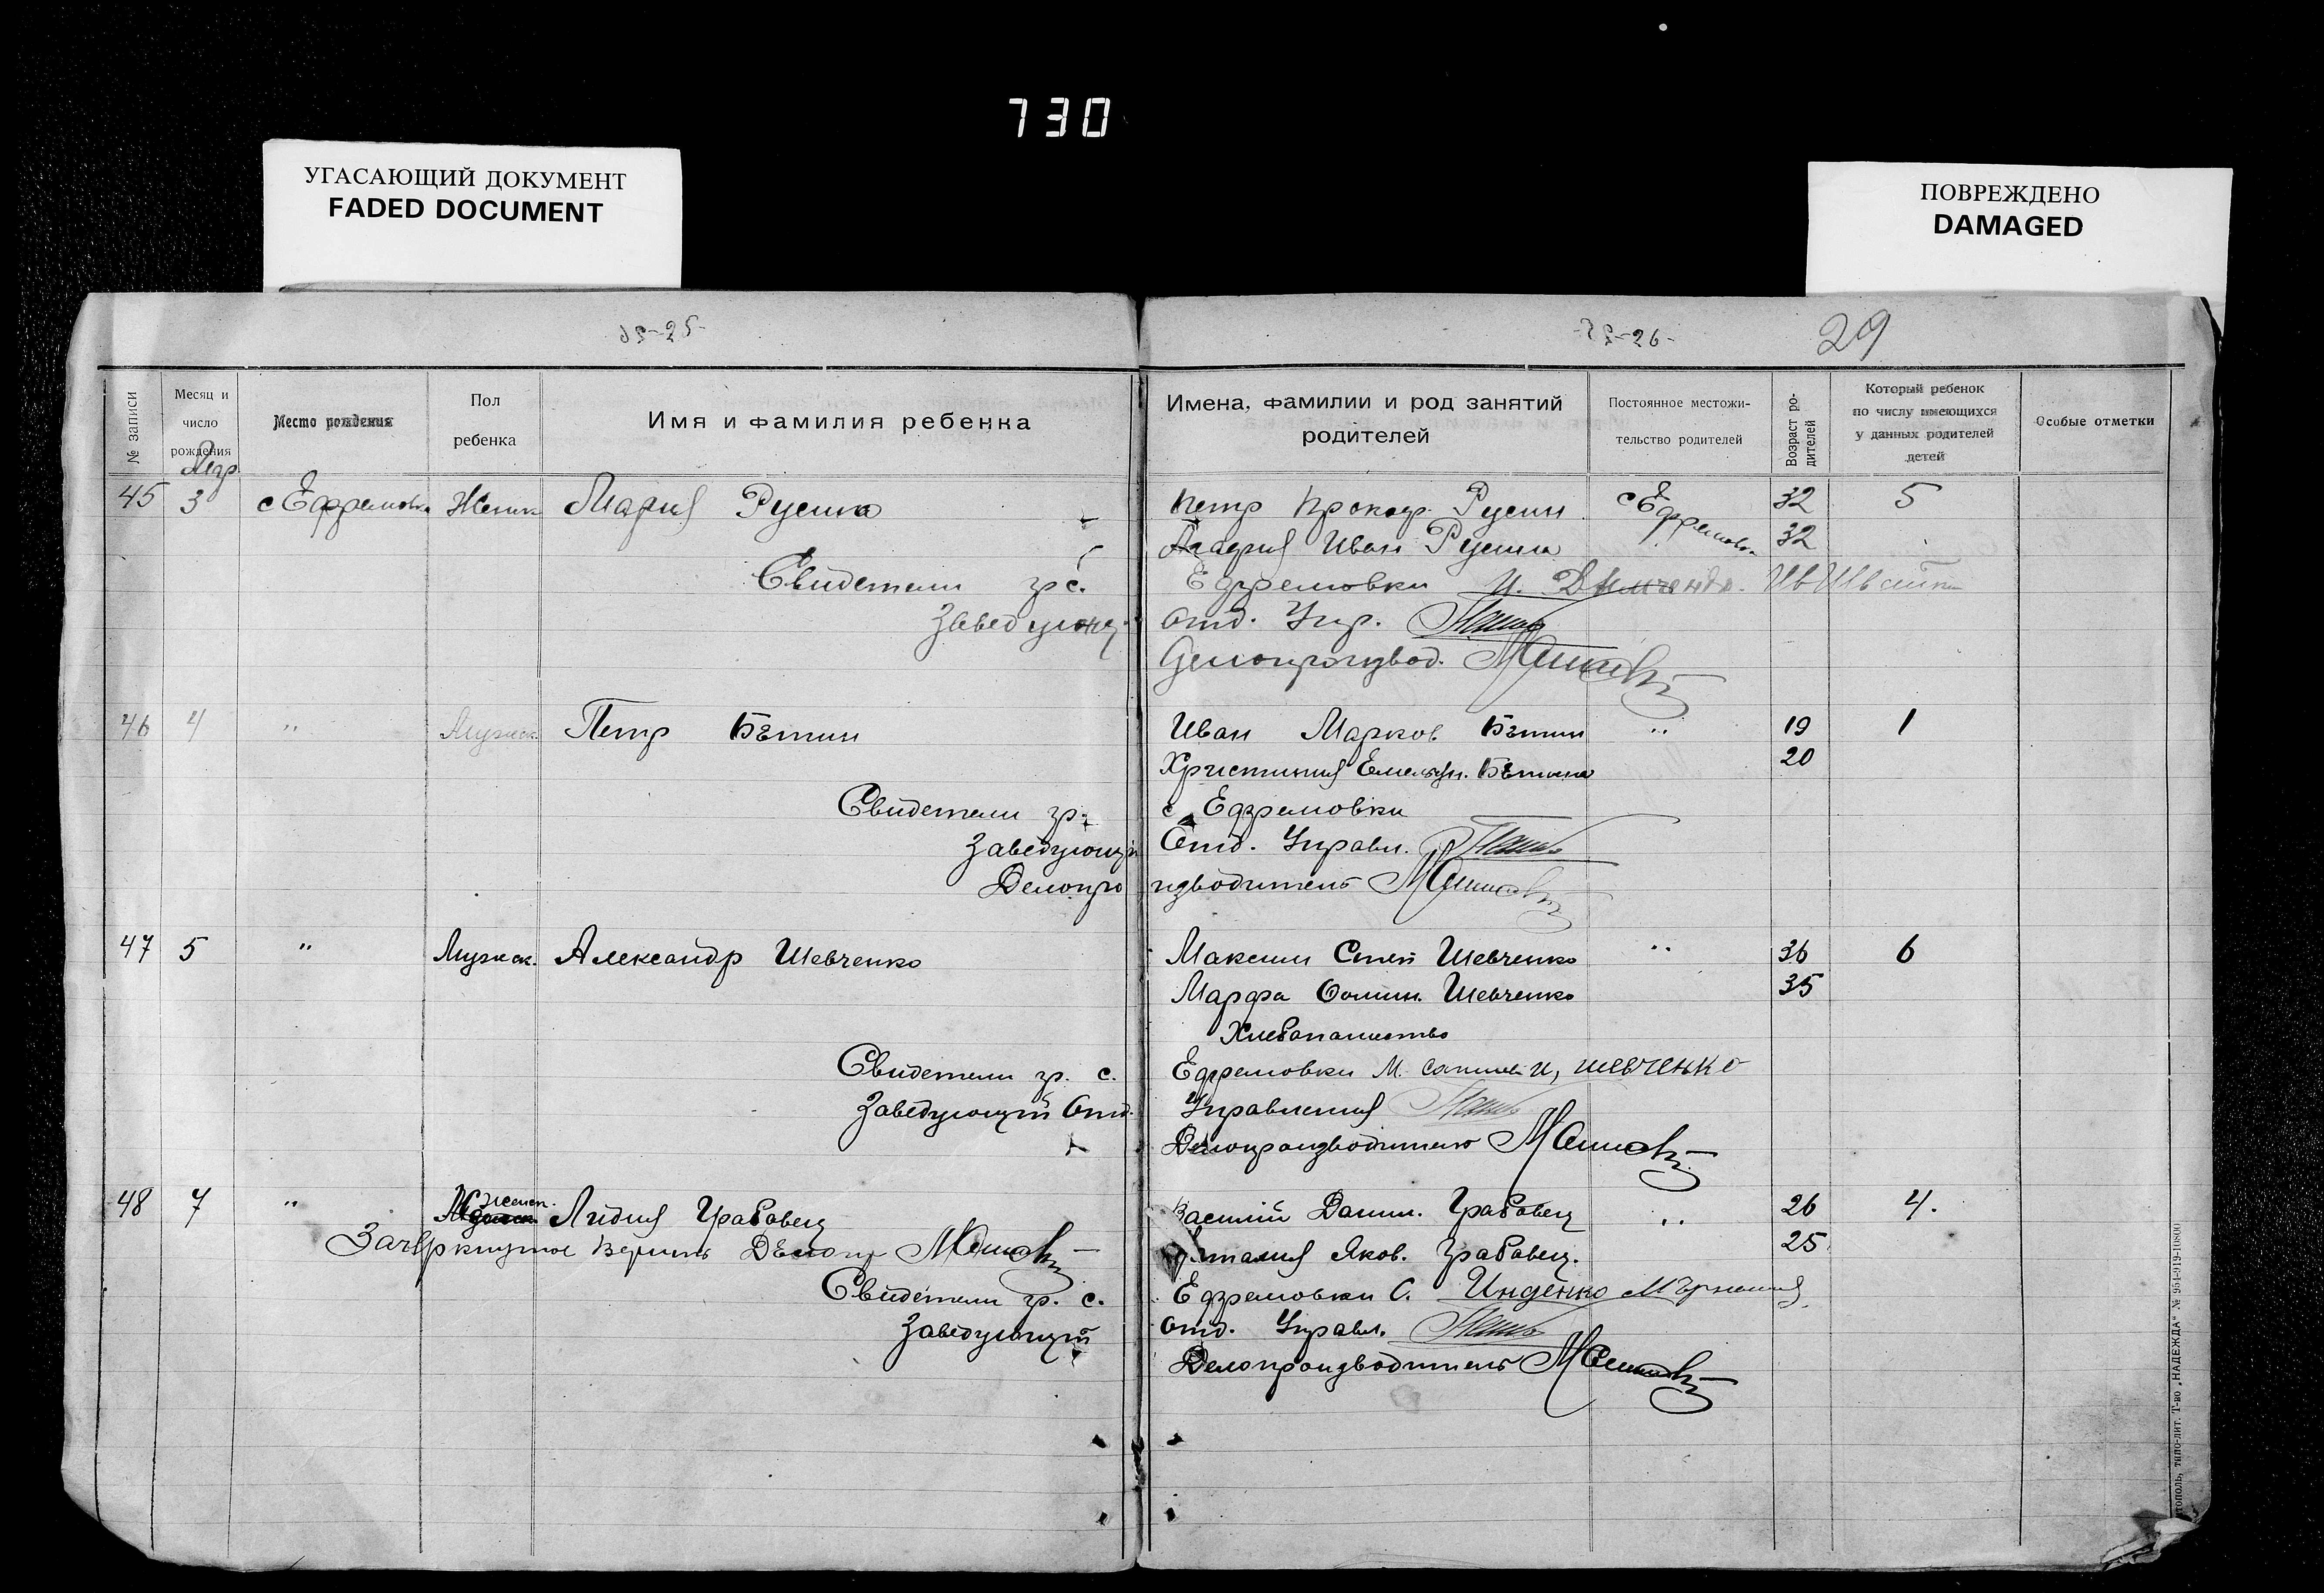 730
УГАСАЮЩИЙ ДОКУМЕНТ
FADED DOCUMENT
ПОВРЕЖДЕНО
DAMAGED
29
№ записи
Месяц и число рождения
Место рождения
Пол ребенка
Имя и фамилия ребенка
Имена, фамилии и род занятий родителей
Постоянное местожительство родителей
Возраст родителей
Который ребенок по числу имеющихся у данных родителей детей
Особые отметки
45 3 с Ефремовка Женск Мария Русина Петр Прокоф. Русин с Ефремовка 32 5
Иван Русина 32
Свидетели гр с. Ефремовки
Заведующ. Отд. Упр.
Делопроизвод.
46 4 " Мужск. Петр Бѣтин Иван Марков Бѣтин " 19 1
Христиния Емельян. Бѣтина 20
Свидетели гр. с Ефремовки
Заведующий Отд. Управл.
Делопроизводитель
47 5 " Мужск. Александр Шевченко Максим Степ Шевченко " 36 6
Марфа Шевченко 35
Хлебопашество
Свидетели гр. с. Ефремовки М. шевченко
Заведующий Отд. Управления
Делопроизводитель
48 7 " женск. Лидия Грабовец Василий Данил. Грабовец " 26 4.
Зачеркнутое верить Делопр Яков. Грабовец. 25
Свидетели гр. с. Ефремовки
Заведующий Отд. Управл.
Делопроизводитель
типо-лит. Т-во „НАДЕЖДА" № 954-919-10800